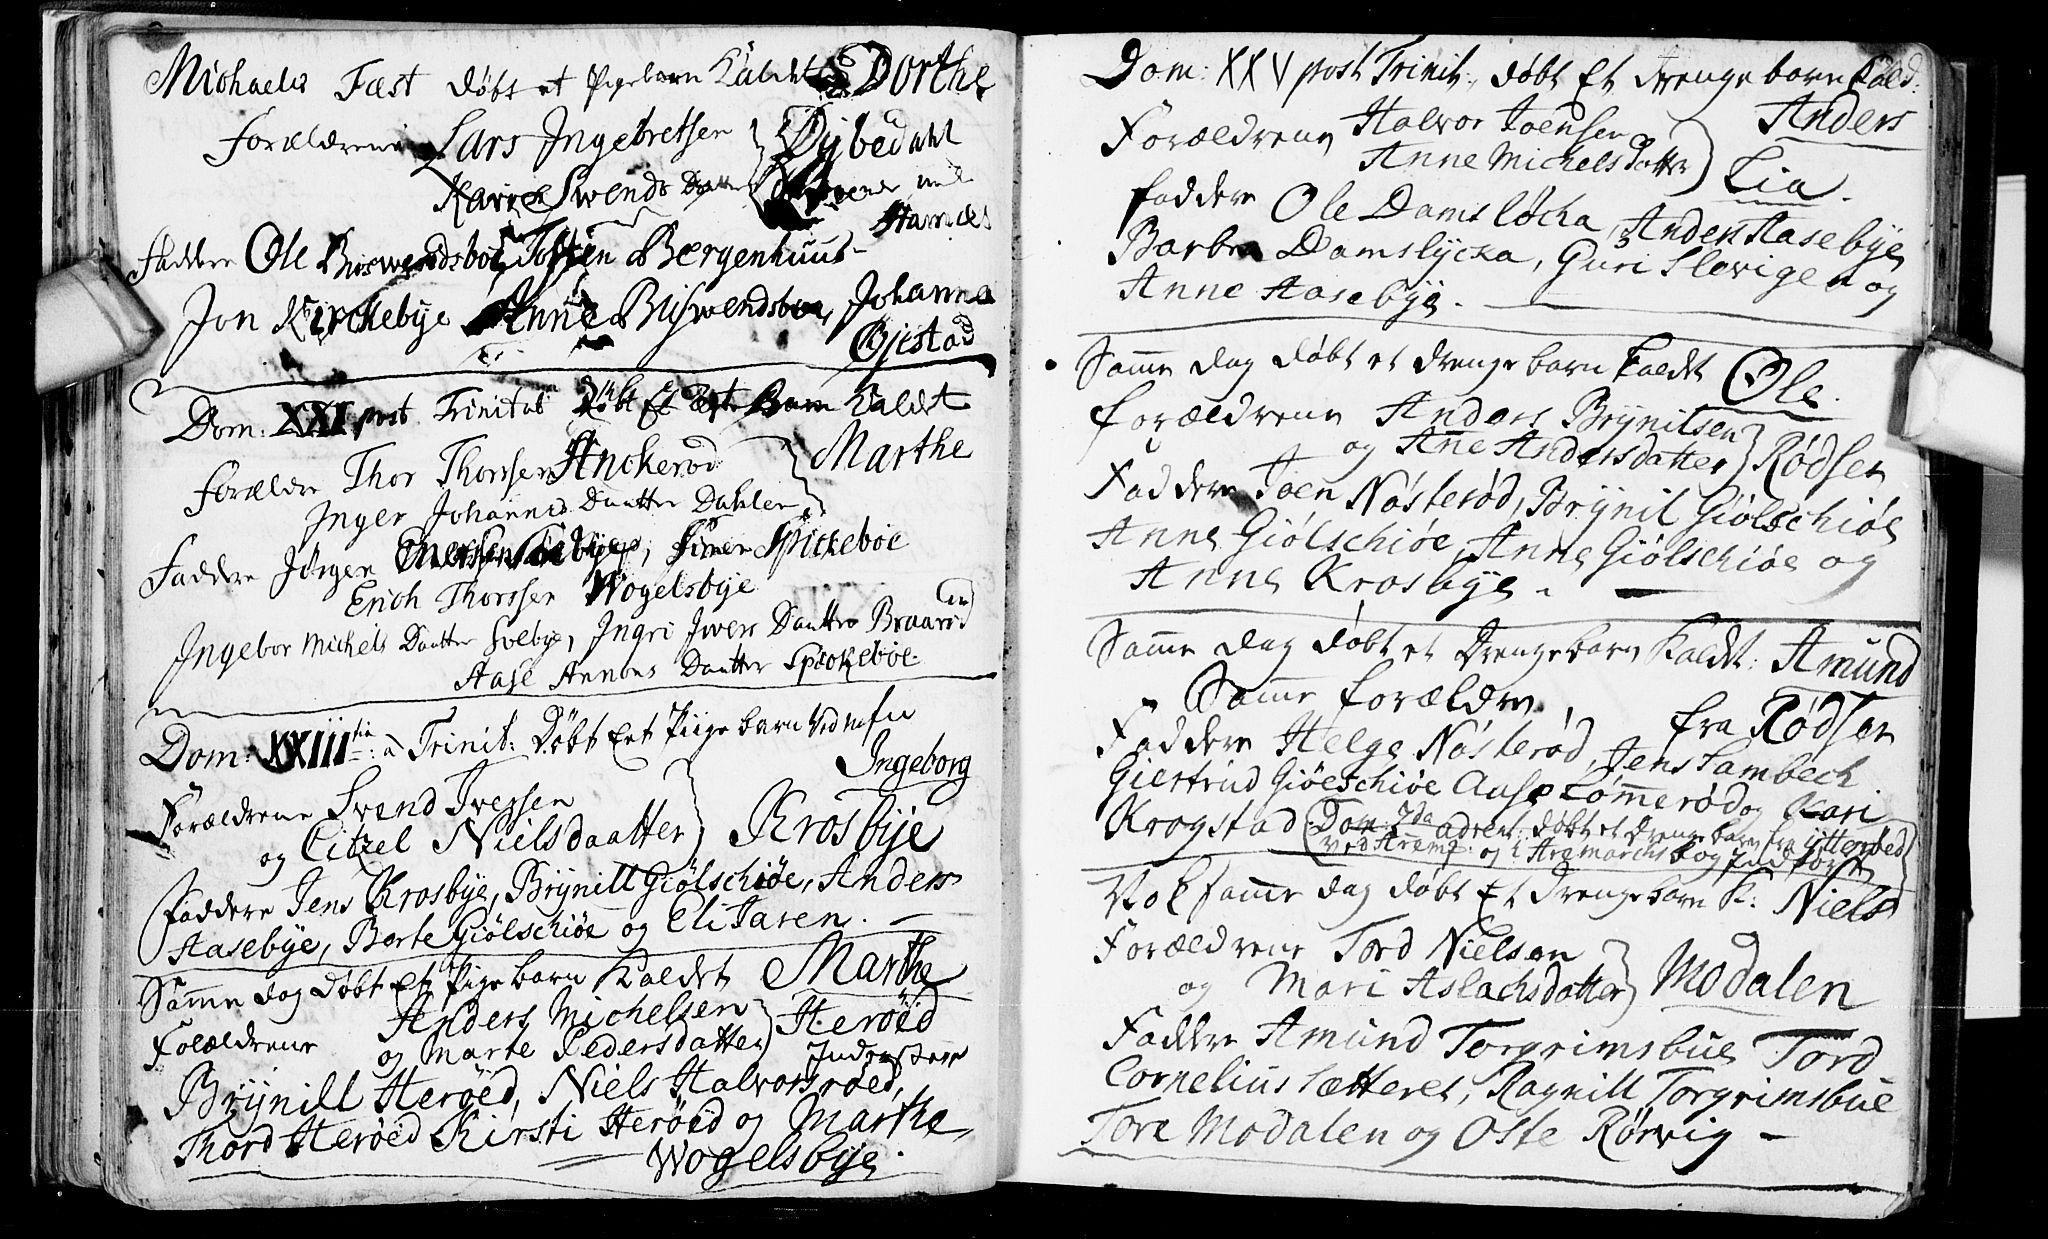 Michaelis Fæst døbt et Pigebarn Kaldet Dorthe
Forældrene Lars Ingebretsen
Karre Swends Datter Dÿbedahl
Faddere Ole Buswendsboe, Bergenhuus
Jon Kirckebye Anne Buswendsboe, Johanna
Gjestad
Dom: XXI post Trinitat døbt Et Barn Kaldet
Forældre Thor Thorssen Anckerød Marthe
Inger Johannis Daatter Dahlen
Faddere Jörgen Solbye, Simen Spickeböe
Erich Thorssen Wogelsbye
Ingebor Michels Daatter Solbye, Ingri Iwers Daatter Braarød
Aase Annons Daatter Spækeböe.
Dom: XXIII tia: à Trinit: Döbt Eet Piige barn ved nafn
Ingeborg
Forældrene Svend Ivessen
og Citzel Nielsdaatter Krosbÿe
Faddere Jens Krosbÿe, Brÿnill Giölschiöe, Anders
Aasebÿe, Borte Giölschiöe og Eli Taren.
Samme dag Döbt Et Pige barn Kaldet Marthe
Folældrene Anders Michelsen
og Marte Pedersdatter Heröed
Brÿnill Heröed, Niels Halvorsröed,
Thord Heröed Kirsti Heröed og Marthe
Wogelsbÿe.
Dom: XXV post Trinit: døbt Et drenge barn Kald:
Forældrene Halvor Joensen Anders
Anne Michelsdatter Lia.
faddere Ole Damsløcka, Anders Aasebÿe,
Barbra Damslÿcka, Guri Slevigen og
Anne Aasebÿe.
Samme dag döbt et drenge barn kaldet Ole.
forældrene Anders Brÿnilsen
og Anne Andersdatter Rödsen
Faddere Joen Nösteröd, Brÿnil Giölschiöe
Anne Giölschiöe, Anne Giölschiöe og
Anne Krosbÿe.
Samme dag döbt et Drengebarn Kaldt: Amund
Samme forældre, fra Rödsen
Faddere Helge Nösteröd, Jens Lambech
Giertrud Giöelschiöe Aase Lömmeröd og Kari
Krogstad. Dom: 2da advent: döbt et drenge barn fra Ÿtteröed
Ved Arem: og i Aremarchs
Nok samme dag döbt Et drengebarn K: Niels
Forældrene Tord Nielsen
og Mari Aslachsdatter Modalen
Faddere Amund Torgrimsbue Tord
Cornelius Sætteret, Ragnill Torgrimsbue
Tore Modalen og Oste Rörvig